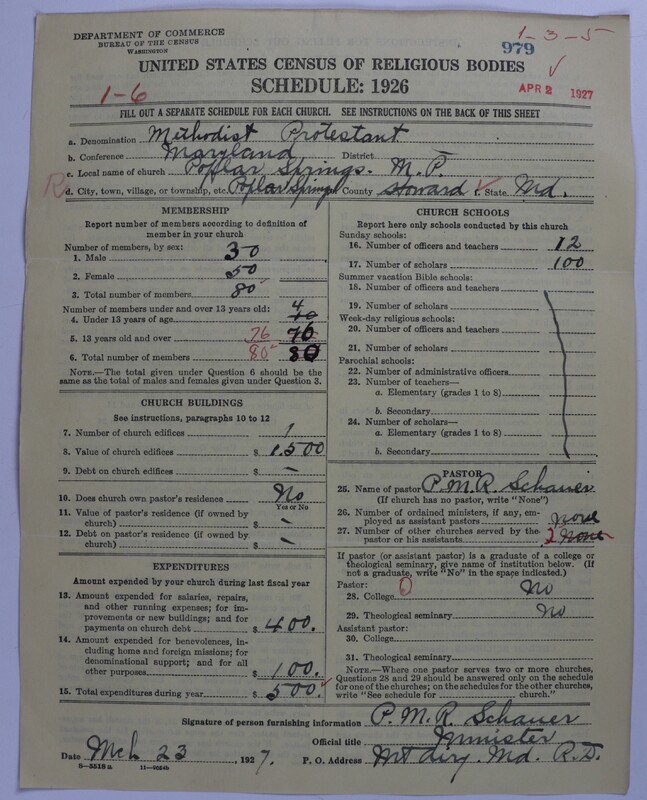 DEPARTMENT OF COMMERCE
BUREAU OF THE CENSUS
WASHINGTON
1-3-5
979
UNITED STATES CENSUS OF RELIGIOUS BODIES
SCHEDULE: 1926
1-6
APR 2 1927
FILL OUT A SEPARATE SCHEDULE FOR EACH CHURCH. SEE INSTRUCTIONS ON THE BACK OF THIS SHEET
a. Denomination Methodist Protestant
b. Conference Maryland District
c. Local name of church Poplar Springs. M. P.
R d. City, town, village, or township, etc. Poplar Springs County Howard f. State Md.
MEMBERSHIP
Report number of members according to definition of member in your church
Number of members, by sex:
1. Male 30
2. Female 50
3. Total number of members 80
Number of members under and over 13 years old:
4. Under 13 years of age 4
5. 13 years old and over 76 76
6. Total number of members 80 80
NOTE.—The total given under Question 6 should be the same as the total of males and females given under Question 3.
CHURCH BUILDINGS
See instructions, paragraphs 10 to 12
7. Number of church edifices 1
8. Value of church edifices $ 1,500
9. Debt on church edifices $ —
10. Does church own pastor's residence No
Yes or No
11. Value of pastor's residence (if owned by church) $ —
12. Debt on pastor's residence (if owned by church) $ —
EXPENDITURES
Amount expended by your church during last fiscal year
13. Amount expended for salaries, repairs, and other running expenses; for improvements or new buildings; and for payments on church debt $ 400.
14. Amount expended for benevolences, including home and foreign missions; for denominational support; and for all other purposes $ 100.
15. Total expenditures during year $ 500.
CHURCH SCHOOLS
Report here only schools conducted by this church
Sunday schools:
16. Number of officers and teachers 12
17. Number of scholars 100
Summer vacation Bible schools:
18. Number of officers and teachers
19. Number of scholars
Week-day religious schools:
20. Number of officers and teachers
21. Number of scholars
Parochial schools:
22. Number of administrative officers
23. Number of teachers—
a. Elementary (grades 1 to 8)
b. Secondary
24. Number of scholars—
a. Elementary (grades 1 to 8)
b. Secondary
PASTOR
25. Name of pastor P. M. R. Schauer
(If church has no pastor, write "None")
26. Number of ordained ministers, if any, employed as assistant pastors none
27. Number of other churches served by the pastor or his assistants 2 none
If pastor (or assistant pastor) is a graduate of a college or theological seminary, give name of institution below. (If not a graduate, write "No" in the space indicated.)
Pastor:
28. College No
29. Theological seminary No
Assistant pastor:
30. College
31. Theological seminary
NOTE.—Where one pastor serves two or more churches, Questions 28 and 29 should be answered only on the schedule for one of the churches; on the schedules for the other churches, write "See schedule for church."
Signature of person furnishing information P. M. R. Schauer
Official title Minister
Date Mch 23, 1927. P. O. Address Mt Airy. Md. R.D.